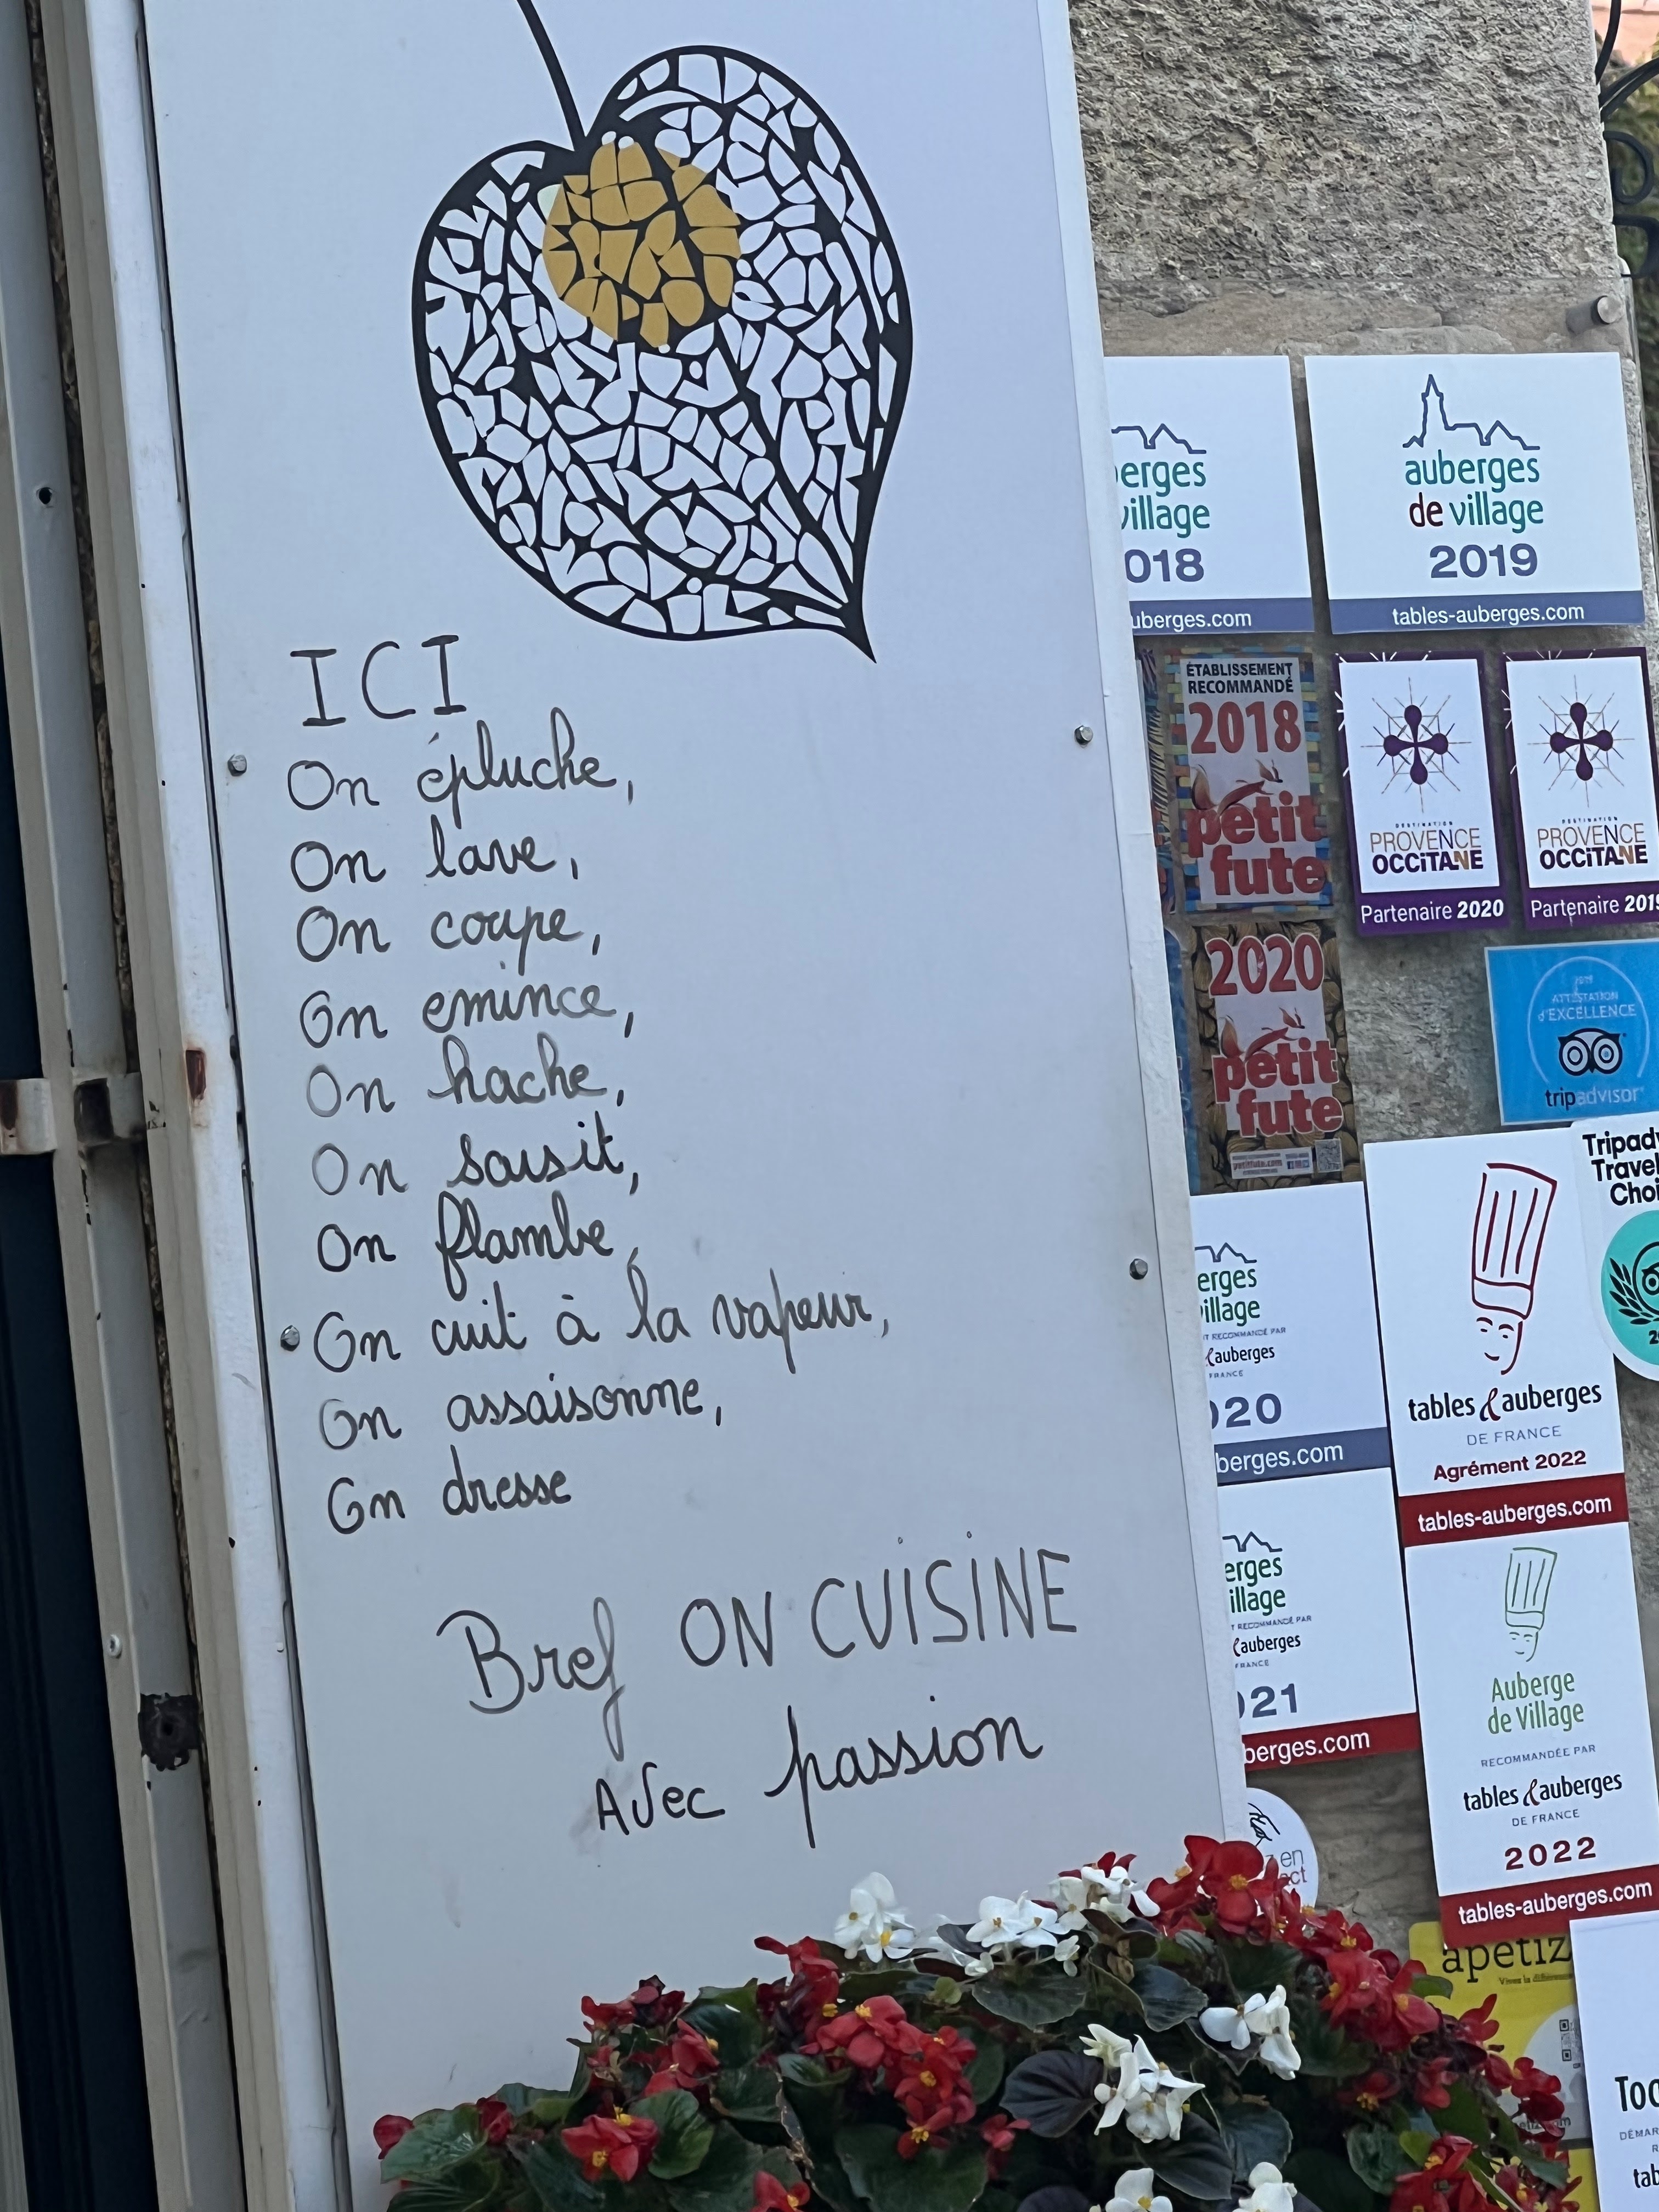 ICI
On épluche,
On lave,
On coupe,
On emince,
On hache,
On saisit,
On flambe,
On cuit à la vapeur,
On assaisonne,
On dresse
Bref ON CUISINE
Avec passion
erges
village
018
uberges.com
auberges
de village
2019
tables-auberges.com
ÉTABLISSEMENT
RECOMMANDÉ
2018
petit
fute
DESTINATION
PROVENCE
OCCITANE
Partenaire 2020
DESTINATION
PROVENCE
OCCITANE
Partenaire 2019
2020
petit
fute
petitfute.com
2019
ATTESTATION
d'EXCELLENCE
tripadvisor
Tripadv
Travel
Choi
erges
illage
T RECOMMANDÉ PAR
&auberges
FRANCE
020
berges.com
tables &auberges
DE FRANCE
Agrément 2022
tables-auberges.com
erges
illage
T RECOMMANDÉ PAR
&auberges
FRANCE
021
berges.com
Auberge
de Village
RECOMMANDÉE PAR
tables &auberges
DE FRANCE
2022
tables-auberges.com
z en
ect
apetiz
Too
DÉMAR
tab